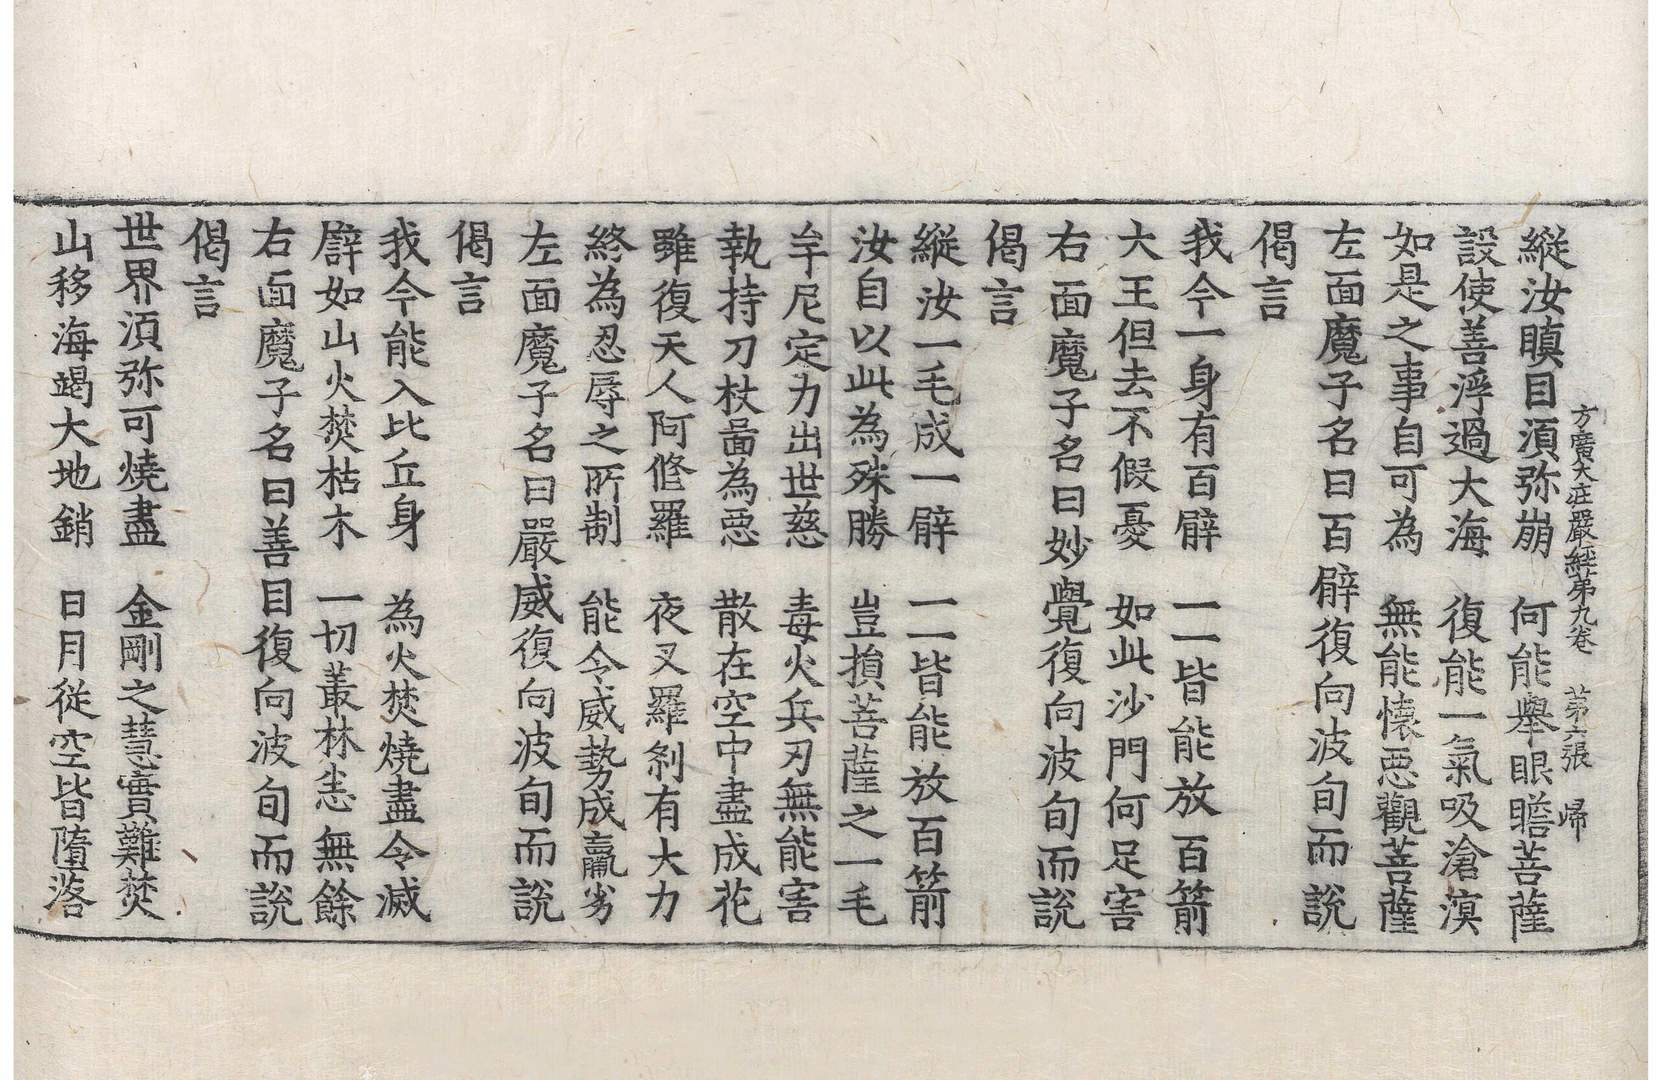 方廣大庄嚴經第九卷 第六張 歸
縱汝瞋目湏弥崩 何能舉眼瞻菩薩
設使善浮過大海 復能一氣吸滄溟
如是之事自可為 無能懷惡觀菩薩
左面魔子名曰百臂復向波旬而說
偈言
我今一身有百臂 一一皆能放百箭
大王但去不假憂 如此沙門何足害
右面魔子名曰妙覺復向波旬而說
偈言
縱汝一毛成一臂 一一皆能放百箭
汝自以此為殊勝 豈損菩薩之一毛
牟尼定力出世慈 毒火兵刃無能害
執持刀杖啚為惡 散在空中盡成花
雖復天人阿修羅 夜叉羅剎有大力
終為忍辱之所制 能令威勢成羸劣
左面魔子名曰嚴威復向波旬而說
偈言
我今能入比丘身 為火焚燒盡令滅
譬如山火焚枯木 一切叢林恙無餘
右面魔子名曰善目復向波旬而說
偈言
世界湏弥可燒盡 金剛之慧實難焚
山移海竭大地銷 日月從空皆墮落